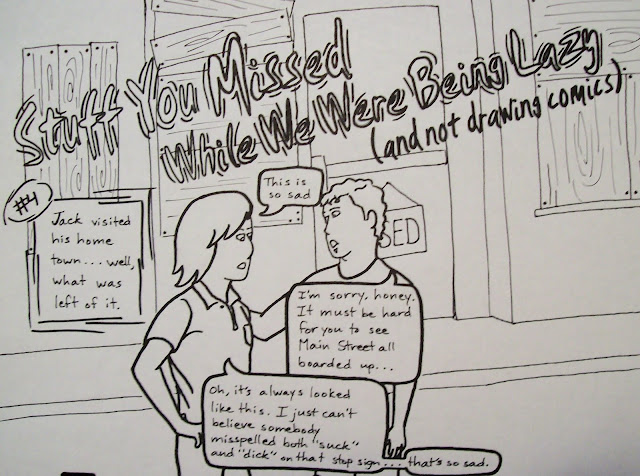 Stuff You Missed
While We Were Being Lazy
(and not drawing comics)
#4
Jack visited
his home
town... well,
what was
left of it.
This is
so sad
SED
I'm sorry, honey.
It must be hard
for you to see
Main Street all
boarded up...
Oh, it's always looked
like this. I just can't
believe somebody
misspelled both "suck"
and "dick" on that stop sign.... that's so sad.